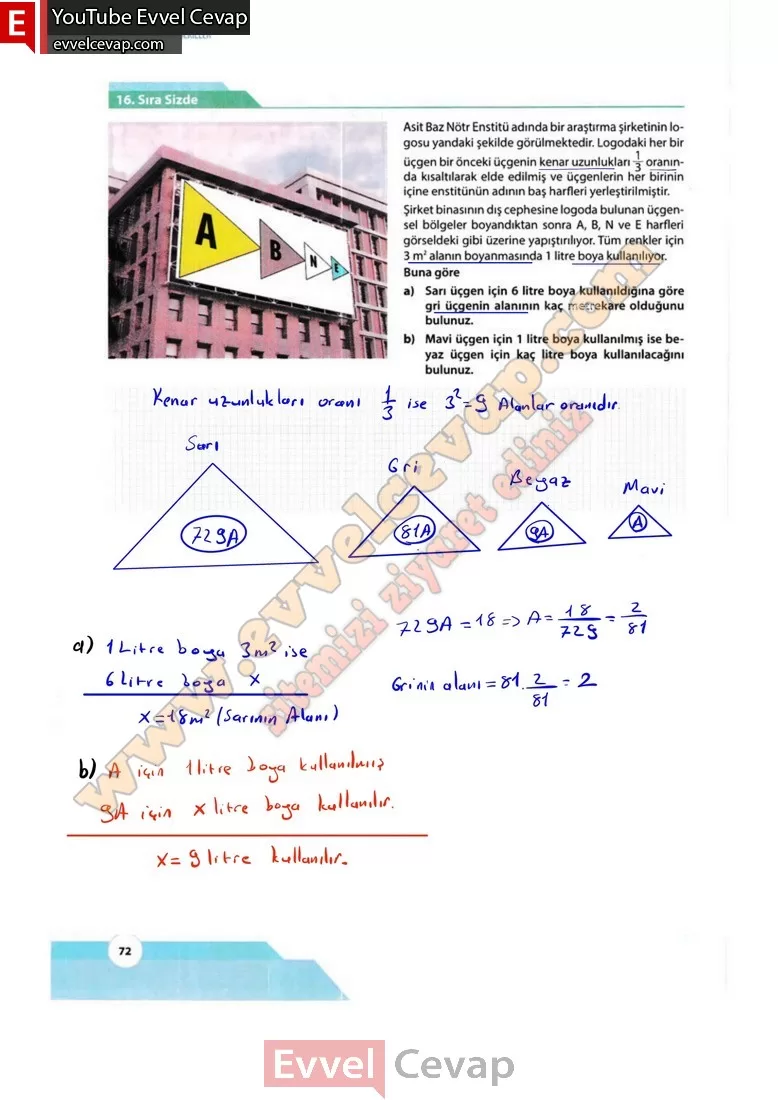 E YouTube Evvel Cevap
evvelcevap.com
16. Sıra Sizde
Asit Baz Nötr Enstitü adında bir araştırma şirketinin lo-
gosu yandaki şekilde görülmektedir. Logodaki her bir
üçgen bir önceki üçgenin kenar uzunlukları 1/3 oranın-
da kısaltılarak elde edilmiş ve üçgenlerin her birinin
içine enstitünün adının baş harfleri yerleştirilmiştir.
Şirket binasının dış cephesine logoda bulunan üçgen-
sel bölgeler boyandıktan sonra A, B, N ve E harfleri
görseldeki gibi üzerine yapıştırılıyor. Tüm renkler için
3 m² alanın boyanmasında 1 litre boya kullanılıyor.
Buna göre
a) Sarı üçgen için 6 litre boya kullanıldığına göre
gri üçgenin alanının kaç metrekare olduğunu
bulunuz.
b) Mavi üçgen için 1 litre boya kullanılmış ise be-
yaz üçgen için kaç litre boya kullanılacağını
bulunuz.
A B N E
Kenar uzunlukları oranı 1/3 ise 3²=9 Alanlar oranıdır.
Sarı Gri Beyaz Mavi
729A 81A 9A A
a) 1 Litre boya 3m² ise
6 Litre boya x
x=18m² (Sarının Alanı)
729A=18=>A=18/729=2/81
Grinin alanı=81.2/81=2
b) A için 1 litre boya kullanılmış
9A için x litre boya kullanılır.
x=9 litre kullanılır.
www.evvelcevap.com
sitemizi ziyaret ediniz
72
Evvel Cevap